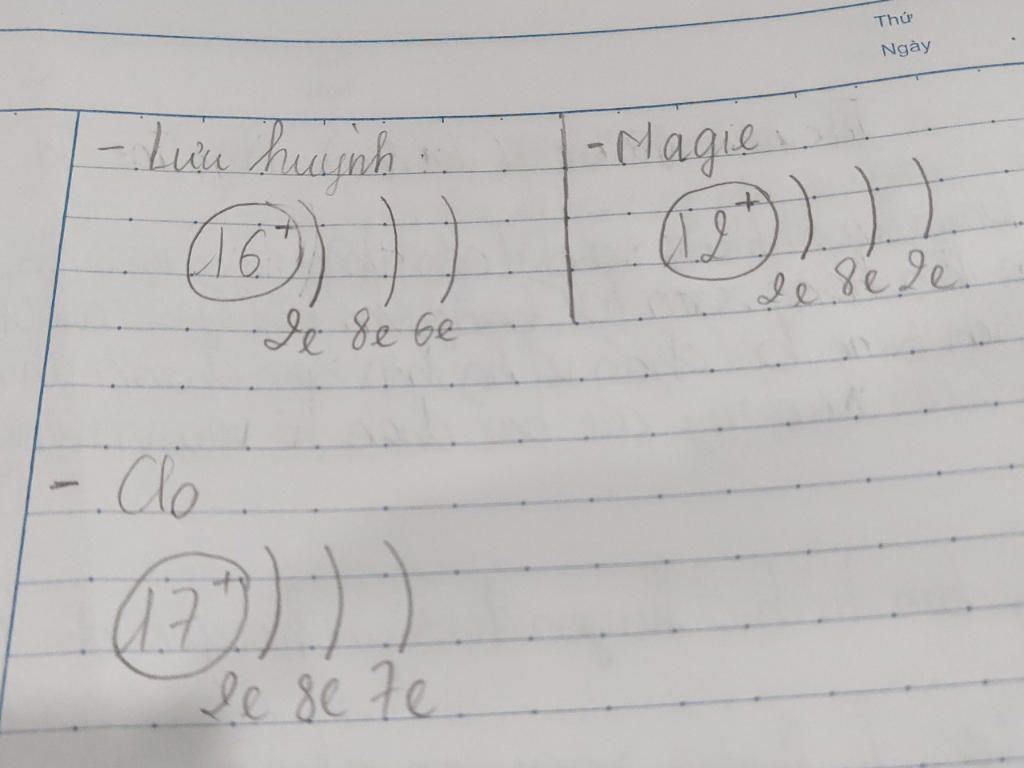 Thứ
Ngày
- Lưu huỳnh:
16+
2e 8e 6e
- Magie
12+
2e 8e 2e
- Clo
17+
2e 8e 7e